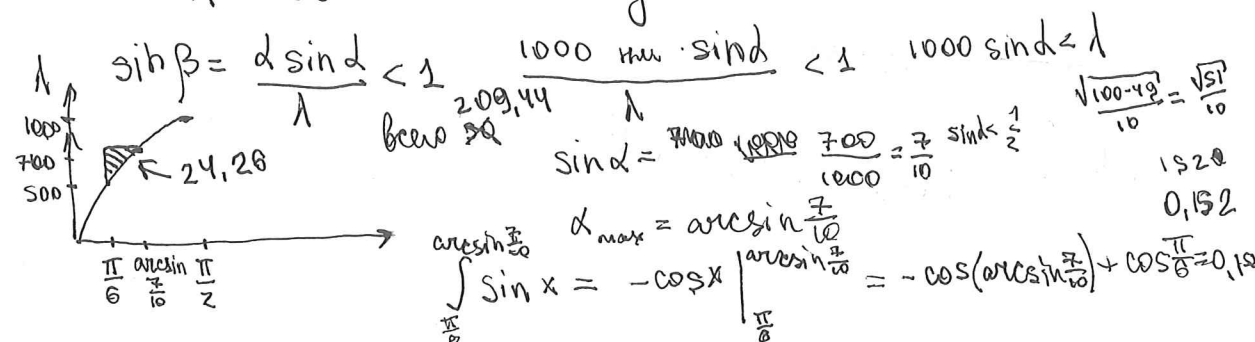 sin β = d sin α / λ < 1    1000 нм · sin α / λ < 1    1000 sin α < λ
√(100-49) / 10 = √51 / 10
λ
1000
700
500
24,26
всего 209,44
sin α = 700 / 1000 = 7 / 10    sin α < 1/2
1520
0,152
α max = arcsin 7/10
π/6    arcsin 7/10    π/2
∫ π/6 arcsin 7/10 sin x = -cos x | π/6 arcsin 7/10 = -cos(arcsin 7/10) + cos π/6 = 0,15